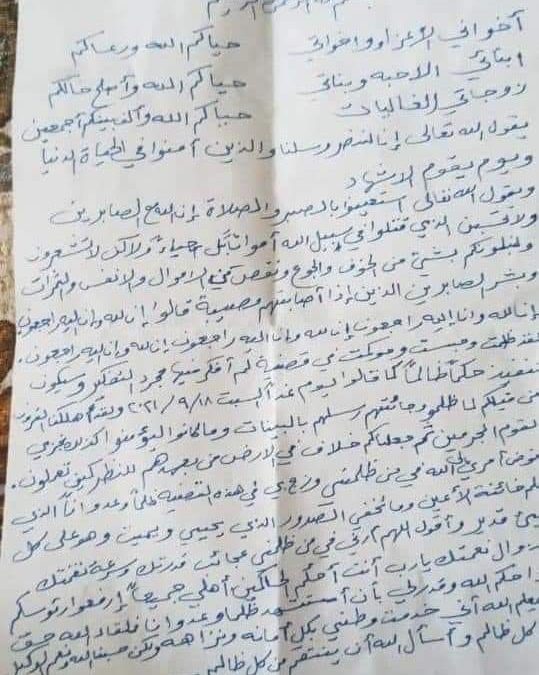 أخواني الأعزاء واخواتي حياكم الله ورعاكم
ابنائي الاحبه وبناتي حياكم الله وأصلح حالكم
زوجاتي الغاليات حياكم الله وألف بينكم أجمعين
يقول الله تعالى إنا لننصر رسلنا والذين أمنوا في الحياة الدنيا
ويوم يقوم الاشهاد
ويقول الله تعالى استعينوا بالصبر والصلاة إن الله مع الصابرين
الذي قتلوا في سبيل الله أمواتاً بل أحياء ولاكن لا تشعرون
ولنبلونكم بشيئ من الخوف والجوع ونقص من الاموال والانفس والثمرات
وبشر لصابرين الذين إذا أصابتهم مصيبة قالوا إن لله وان اليه راجعون
إنا لله وانا اليه راجعون إنا لله وانا اليه راجعون إنا لله وانا اليه راجعون.
لقد ظلمت وحبست وحوكمت في قضية لم أفكر فيها مجرد التفكير وسيكون
تنفيذ حكماً ظالماً كما قالوا يوم غد السبت ٢٠٢١/٩/١٨ ولقد أهلكنا القرون
من قبلكم لما ظلموا وجائتهم رسلهم بالبينات وما كانوا ليؤمنوا كذلك نجزي
القوم المجرمين ثم جعلناكم خلاف في الارض من بعدهم للنظر كيف تعملون.
أفوض أمري إلى الله في من ظلمني وزج بي في هذه القضيه ظلماً وعدواناً الذي
يعلم خائنة الأعين وما تخفي الصدور الذي يحيي ويميت وهو على كل
شيئ قدير وأقول اللهم أرني في من ظلمني عجائب قدرتك وسرعة نقمتك
وزوال نعمتك يارب أنت أحكم الحاكمين أهلي جميعاً إرفعوا رئوسكم
الله وقدر لي بأن أستشهد ظلماً وعدوانا فلقاء الله حق
يعلم الله أني خدمت وطني بكل أمانه ونزاهه ولكن حسبنا الله ونعم الوكيل
كل ظالم وأسأل الله أن ينتقم من كل ظالم